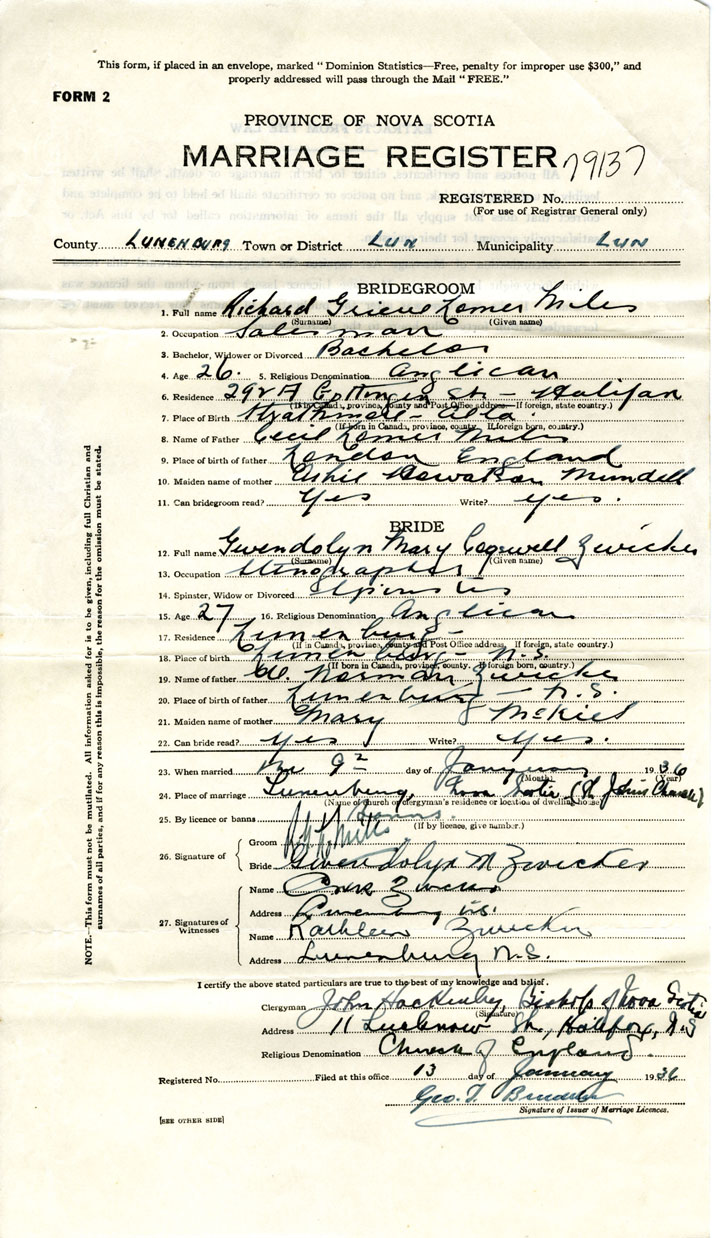 This form, if placed in an envelope, marked "Dominion Statistics—Free, penalty for improper use $300," and
properly addressed will pass through the Mail "FREE."
FORM 2
PROVINCE OF NOVA SCOTIA
MARRIAGE REGISTER 79137
REGISTERED No.
(For use of Registrar General only)
County LUNENBURG Town or District LUN Municipality LUN
BRIDEGROOM
1. Full name Richard Grieve Homer Miles
(Surname) (Given name)
2. Occupation Salesman
3. Bachelor, Widower or Divorced Bachelor
4. Age 26. 5. Religious Denomination Anglican
6. Residence 292 A Gottingen St - Halifax
(If in Canada, province, county and Post Office address. If foreign, state country.)
7. Place of Birth Strathmore - Alta.
(If born in Canada, province, county. If foreign born, country.)
8. Name of Father Cecil Homer Miles
9. Place of birth of father London England
10. Maiden name of mother Mundell
11. Can bridegroom read? Yes Write? yes.
BRIDE
12. Full name Gwendolyn Mary Cogswell Zwicker
(Surname) (Given name)
13. Occupation Stenographer
14. Spinster, Widow or Divorced Spinster
15. Age 27 16. Religious Denomination Anglican
17. Residence Lunenburg -
(If in Canada, province, county and Post Office address. If foreign, state country.)
18. Place of birth Lunenburg - N.S.
(If born in Canada, province, county. If foreign born, country.)
19. Name of father Norman Zwicker
20. Place of birth of father Lunenburg - N.S.
21. Maiden name of mother Mary McKiel
22. Can bride read? yes Write? yes.
23. When married 9 day of January 1936
(Month) (Year)
24. Place of marriage Lunenburg, Nova Scotia (St Johns Church)
(Name of church or clergyman's residence or location of dwelling house)
25. By licence or banns Banns.
(If by licence, give number.)
26. Signature of
Groom
Bride Gwendolyn M Zwicker
27. Signatures of
Witnesses
Name Zwicker
Address Lunenburg N.S.
Name Kathleen Zwicker
Address Lunenburg N.S.
I certify the above stated particulars are true to the best of my knowledge and belief.
Clergyman John Hackenley, Bishop of Nova Scotia
(Signature)
Address 11 Lucknow St., Halifax, N.S
Religious Denomination Church of England.
Registered No. Filed at this office 13 day of January 1936
Geo. T.
Signature of Issuer of Marriage Licences.
[SEE OTHER SIDE]
NOTE.—This form must not be mutilated. All information asked for is to be given, including full Christian and
surnames of all parties, and if for any reason this is impossible, the reason for the omission must be stated.